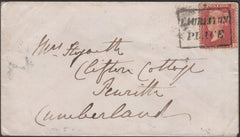 LAURISTON
PLACE
Mrs Heworth
Clifton Cottage
Penrith
Cumberland